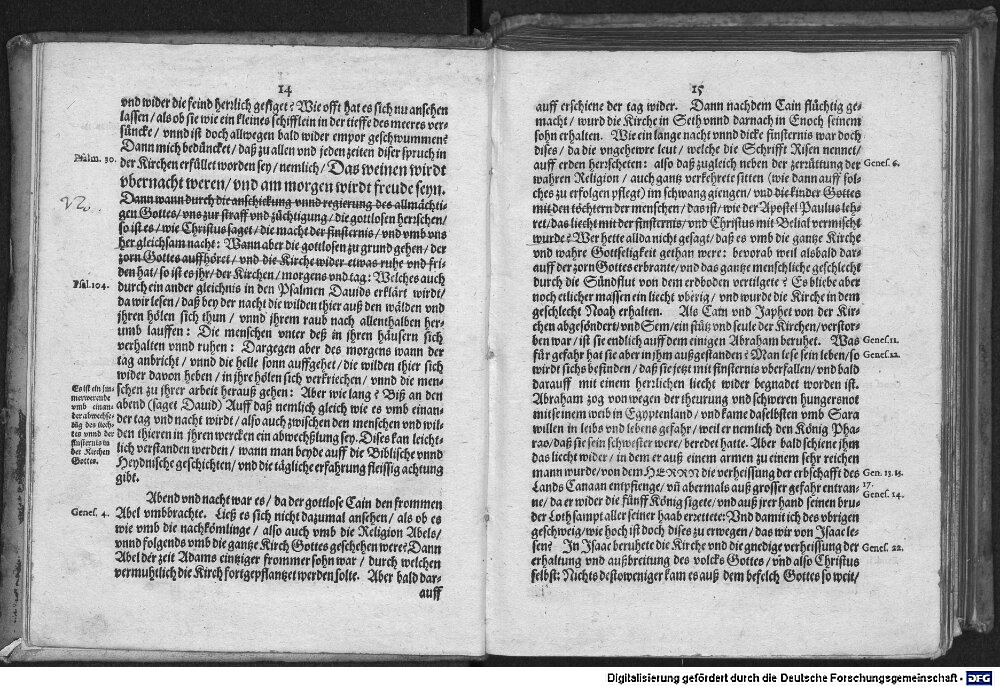 14
vnd wider die feind herrlich gesiget? Wie offt hat es sich nu ansehen
lassen / als ob sie wie ein kleines schifflein in der tieffe des meeres ver-
süncke / vnnd ist doch allwegen bald wider empor geschwummen?
Dann mich bedüncket / daß zu allen vnd jeden zeiten diser spruch in
Psalm. 30.
der Kirchen erfüllet worden sey / nemlich / Das weinen wirdt
vbernacht weren / vnd am morgen wirdt freude seyn.
Dann wann durch die anschickung vnnd regierung des allmächti-
gen Gottes / vns zur straff vnd züchtigung / die gottlosen herrschen /
so ist es / wie Christus saget / die macht der finsternis / vnd vmb vns
her gleichsam nacht: Wann aber die gottlosen zu grund gehen / der
zorn Gottes auffhöret / vnd die Kirche wider etwas ruhe vnd fri-
den hat / so ist es jhr / der Kirchen / morgens vnd tag: Welches auch
Psal. 104.
durch ein ander gleichnis in den Psalmen Dauids erklärt wirdt /
da wir lesen / daß bey der nacht die wilden thier auß den wälden vnd
jhren hölen sich thun / vnnd jhrem raub nach allenthalben her-
umb lauffen: Die menschen vnter deß in jhren häusern sich
verhalten vnnd ruhen: Dargegen aber des morgens wann der
tag anbricht / vnnd die helle sonn auffgehet / die wilden thier sich
wider davon heben / in jhre hölen sich verkriechen / vnnd die men-
schen zu jhrer arbeit herauß gehen: Aber wie lang? Biß an den
abend (saget Dauid) Auff daß nemlich gleich wie es vmb einan-
der tag vnd nacht wirdt / also auch zwischen den menschen vnd wil-
den thieren in jhren wercken ein abwechßlung sey. Dises kan leicht-
lich verstanden werden / wann man beyde auff die Biblische vnnd
Heydnische geschichten / vnd die tägliche erfahrung fleissig achtung
gibt.
Es ist ein jm-
merwerende
vmb einan-
der abwechse-
lung des liech-
tes vnnd der
finsternis in
der Kirchen
Gottes.
Abend vnd nacht war es / da der gottlose Cain den frommen
Genes. 4.
Abel vmbbrachte. Ließ es sich nicht dazumal ansehen / als ob es
wie vmb die nachkömlinge / also auch vmb die Religion Abels /
vnnd folgends vmb die gantze Kirch Gottes geschehen were? Dann
Abel der zeit Adams eintziger frommer sohn war / durch welchen
vermuhtlich die Kirch fortgepflantzet werden solte. Aber bald dar-
auff
15
auff erschiene der tag wider. Dann nachdem Cain flüchtig ge-
macht / wurd die Kirche in Seth vnnd darnach in Enoch seinem
sohn erhalten. Wie ein lange nacht vnnd dicke finsternis war doch
dises / da die vngehewre leut / welche die Schrifft Risen nennet /
auff erden herscheten: also daß zugleich neben der zerrüttung der
Genes. 6.
wahren Religion / auch gantz verkehrete sitten (wie dann auff sol-
ches zu erfolgen pflegt) im schwang giengen / vnd die kinder Gottes
mit den töchtern der menschen / das ist / wie der Apostel Paulus leh-
ret / das liecht mit der finsternis / vnd Christus mit Belial vermischt
wurde? Wer hette allda nicht gesagt / daß es vmb die gantze Kirche
vnd wahre Gottseligkeit gethan were: bevorab weil alsbald dar-
auff der zorn Gottes erbrante / vnd das gantze menschliche geschlecht
durch die Sündflut von dem erdboden vertilgete? Es bliebe aber
noch etlicher massen ein liecht vberig / vnd wurde die Kirche in dem
geschlecht Noah erhalten. Als Cam vnd Japhet von der Kir-
chen abgesöndert / vnd Sem / ein stütz vnd seule der Kirchen / verstor-
ben war / ist sie endlich auff dem einigen Abraham beruhet. Was
Genes. 11.
für gefahr hat sie aber in jhm außgestanden? Man lese sein leben / so
Genes. 12.
wirdt sichs befinden / daß sie jetzt mit finsternis vberfallen / vnd bald
darauff mit einem herrlichen liecht wider begnadet worden ist.
Abraham zog von wegen der theurung vnd schweren hungersnot
mit seinem weib in Egyptenland / vnd kame daselbsten vmb Sara
willen in leibs vnd lebens gefahr / weil er nemlich den König Pha-
rao / daß sie sein schwester were / beredet hatte. Aber bald schiene jhm
das liecht wider / in dem er auß einem armen zu einem sehr reichen
mann wurde / von dem HERRN die verheissung der erbschafft des
Gen. 13. 15.
17.
Lands Canaan entpfienge / vñ abermals auß grosser gefahr entran-
Genes. 14.
ne / da er wider die fünff König sigete / vnd auß jrer hand seinen bru-
der Loth sampt aller seiner haab errettete: Vnd damit ich des vbrigen
geschweig / wie hoch ist doch dises zu erwegen / das wir von Isaac le-
sen? In Isaac beruhete die Kirche vnd die gnedige verheissung der
Genes. 22.
erhaltung vnd außbreitung des volcks Gottes / vnd also Christus
selbst: Nichts destoweniger kam es auß dem befelch Gottes so weit /
Digitalisierung gefördert durch die Deutsche Forschungsgemeinschaft - DFG